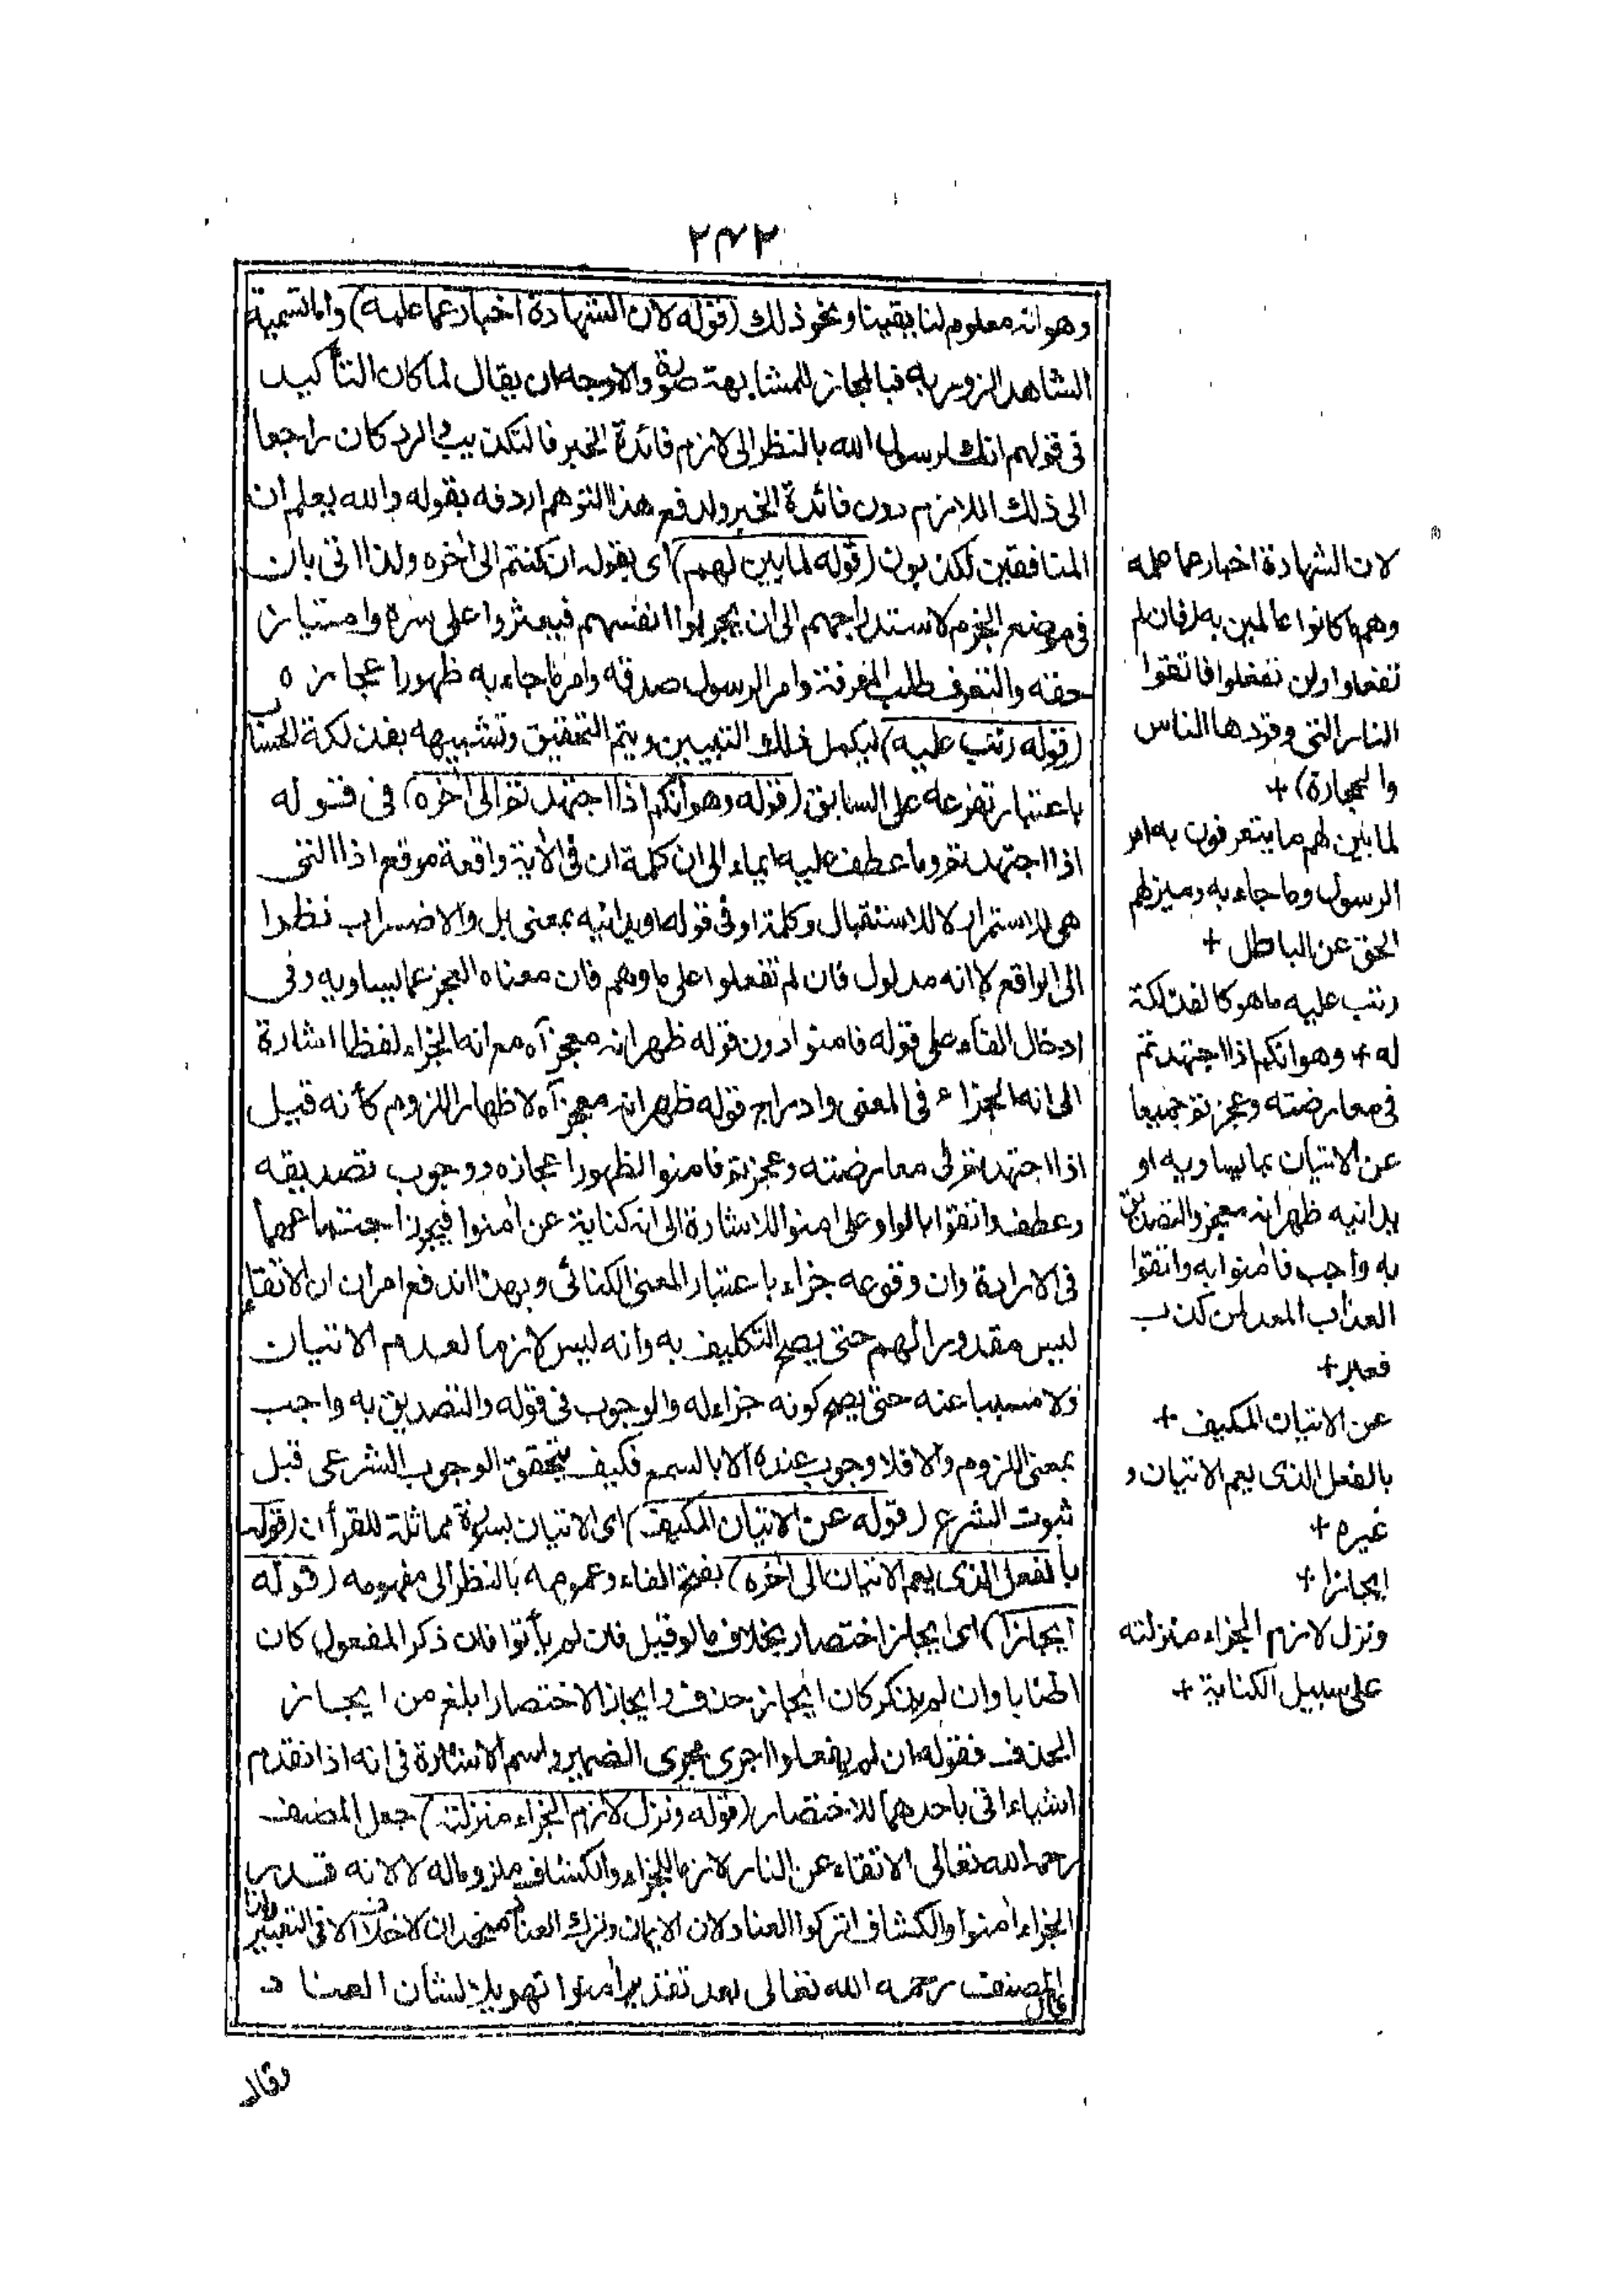 ٢٤٢
وهو انه معلوم لنا يقينا ونحو ذلك (قوله لان الشهادة اخبار عما علمه) واما تسمية
الشاهد الزور به فبالمجاز للمشابهة صورة والاوجه ان يقال لما كان التأكيد
فى قولهم انك لرسول الله بالنظر الى لازم فائدة الخبر فالتكذيب والرد كان راجعا
الى ذلك اللازم دون فائدة الخبر ولدفع هذا التوهم اردفه بقوله والله يعلم ان
المنافقين لكذبون (قوله لما بين لهم) اى بقوله ان كنتم الى اخره ولذا اتى بان
فى موضع الجزم لاستدراجهم الى ان يجربوا انفسهم فيعثروا على سره وامتياز
حقه والتعرف طلب المعرفة وامر الرسول صدقه وامر ما جاء به ظهور اعجازه
(قوله رتب عليه) ليكمل ذلك التبيين ويتم التحقيق وتشبيهه بفذلكة الحساب
باعتبار تفرعه على السابق (قوله وهو انكم اذا اجتهدتم الى اخره) فى قوله
اذا اجتهدتم وما عطف عليه ايماء الى ان كلمة ان فى الأية واقعة موقع اذا التى
هى للاستمرار لا للاستقبال وكلمة او فى قوله او يدانيه بمعنى بل والاضراب نظرا
الى الواقع لا انه مدلول فان لم تفعلوا على ما وهم فان معناه العجز عما يساويه وفى
ادخال الفاء على قوله فامنوا دون قوله ظهر انه معجز آه مع انه الجزاء لفظا اشارة
الى انه الجزاء فى المعنى وادراج قوله ظهر انه معجز آه لاظهار اللزوم كأنه قيل
اذا اجتهدتم فى معارضته وعجزتم فامنوا لظهور اعجازه ووجوب تصديقه
وعطف واتقوا بالواو على امنوا للاشارة الى انه كناية عن امنوا فيجوز اجتماعهما
فى الارادة وان وقوعه جزاء باعتبار المعنى الكنائى وبهذا اندفع امران ان الاتقاء
ليس مقدورا لهم حتى يصح التكليف به وانه ليس لازما لعدم الاتيان
ولا مسببا عنه حتى يصح كونه جزاء له والوجوب فى قوله والتصديق به واجب
بمعنى اللزوم والا فلا وجوب عنده الا بالسمع فكيف يتحقق الوجوب الشرعى قبل
ثبوت الشرع (قوله عن الاتيان المكيف) اى الاتيان بسورة مماثلة للقرأن (قوله
بالفعل الذى يعم الاتيان الى اخره) بفتح الفاء وعمومه بالنظر الى مفهومه (قوله
ايجازا) اى ايجاز اختصار بخلاف ما لو قيل فان لم يأتوا فان ذكر المفعول كان
اطنابا وان لم يذكر كان ايجاز حذف وايجاز الاختصار ابلغ من ايجاز
الحذف فقوله ان لم يفعلوا اجرى مجرى الضمير واسم الاشارة فى انه اذا تقدم
اشياء اتى باحدهما للاختصار (قوله ونزل لازم الجزاء منزلته) جعل المصنف
رحمه الله تعالى الاتقاء عن النار لازما للجزاء والكشاف ملزوما له لا لانه قدر
الجزاء امنوا والكشاف اتركوا العناد لان الايمان وترك العناد متحدان لاخلاف الا فى التعبير وانما
قال المصنف رحمه الله تعالى بعد تقدير امنوا تهويلا لشأن العناد
وقال
لان الشهادة اخبار عما علمه
وهم ما كانوا عالمين به (فان لم
تفعلوا ولن تفعلوا فاتقوا
النار التى وقودها الناس
والحجارة) +
لما بين لهم ما يتعرفون به امر
الرسول وما جاء به وميز لهم
الحق عن الباطل +
رتب عليه ما هو كالفذلكة
له + وهو انكم اذا اجتهدتم
فى معارضته وعجزتم جميعا
عن الاتيان بما يساويه او
يدانيه ظهر انه معجز والتصديق
به واجب فامنوا به واتقوا
العذاب المعد لمن كذب
فعبر +
عن الاتيان المكيف +
بالفعل الذى يعم الاتيان و
غيره +
ايجازا +
ونزل لازم الجزاء منزلته
على سبيل الكناية +